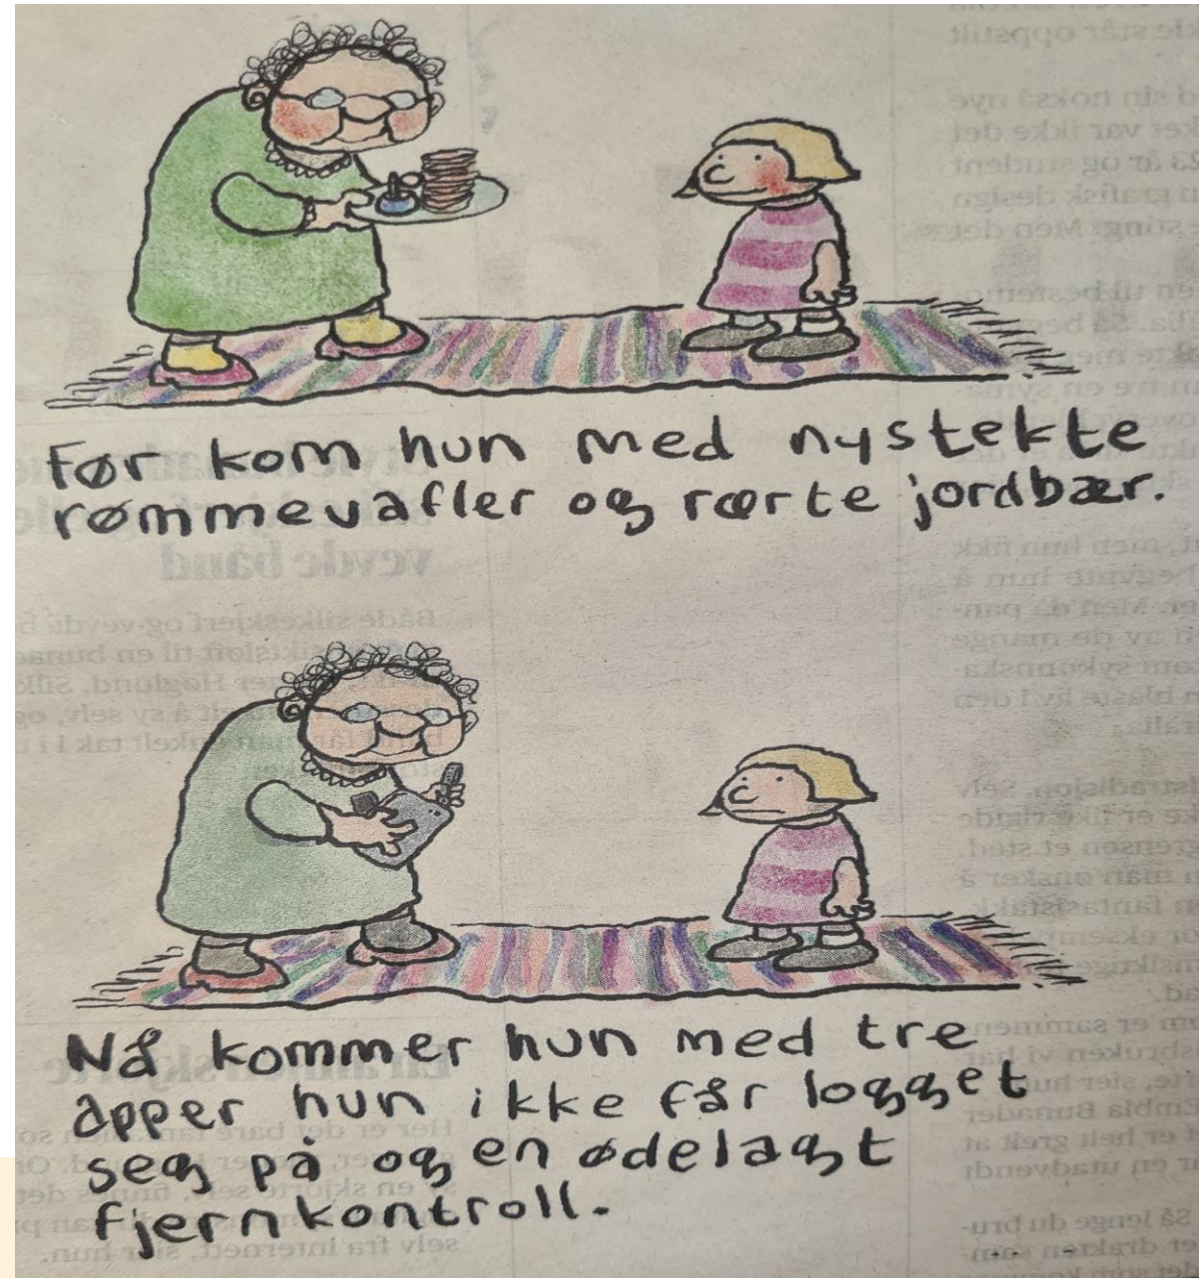 Før kom hun med nystekte
rømmevafler og rørte jordbær.
Nå kommer hun med tre
apper hun ikke får logget
seg på og en ødelagt
fjernkontroll.